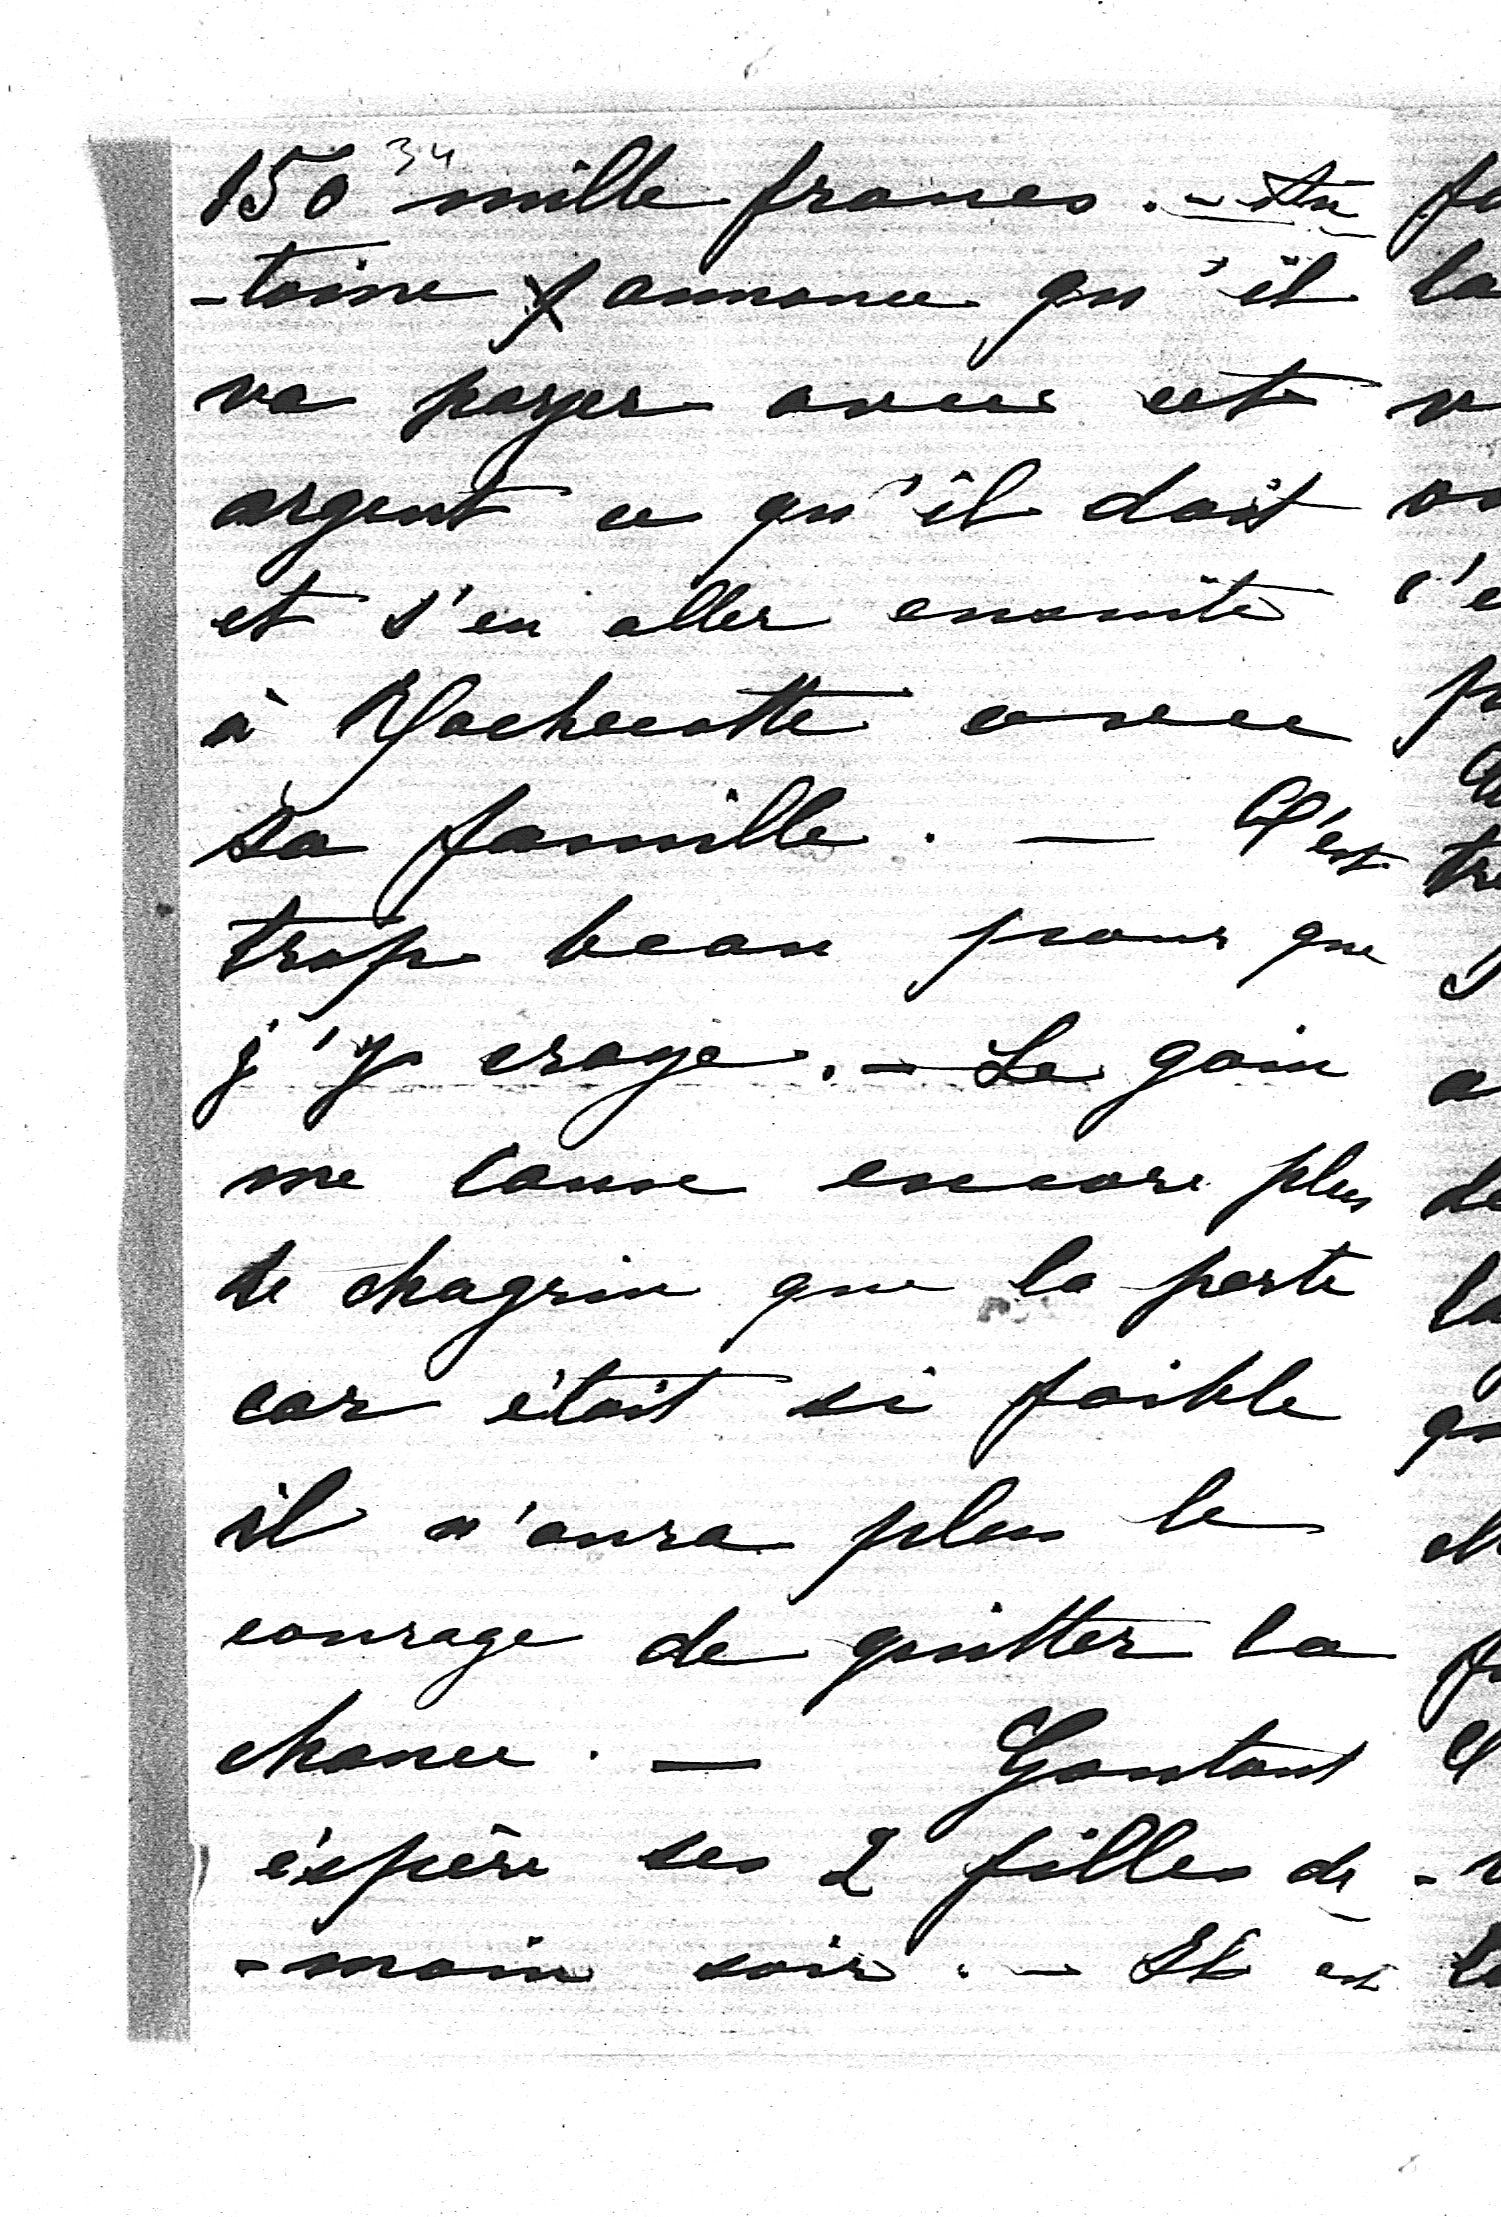 34
150 mille francs. - An
-toine annonce qu'il
va payer avec cet
argent ce qu'il doit
et s'en aller ensuite
à Rochecotte avec
sa famille. — C'est
trop beau pour que
j'y croye. - Le gain
me cause encore plus
de chagrin que la perte
car étoit si faible
il n'aura plus le
courage de quitter la
chance. — Gontaut
éspère ses 2 filles de
-main soir. - Il est